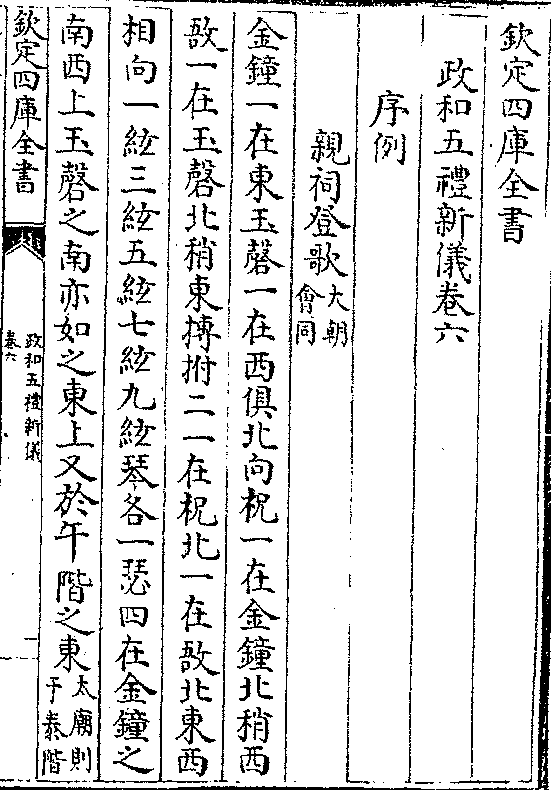 欽定四庫全書
政和五禮新儀卷六
序例
親祠登歌大朝會同
金鐘一在東玉磬一在西俱北向柷一在金鐘北稍西
敔一在玉磬北稍東搏拊二一在柷北一在敔北東西
相向一絃三絃五絃七絃九絃琴各一瑟四在金鐘之
南西上玉磬之南亦如之東上又於午階之東太廟則于泰階
欽定四庫全書
政和五禮新儀
卷六
一